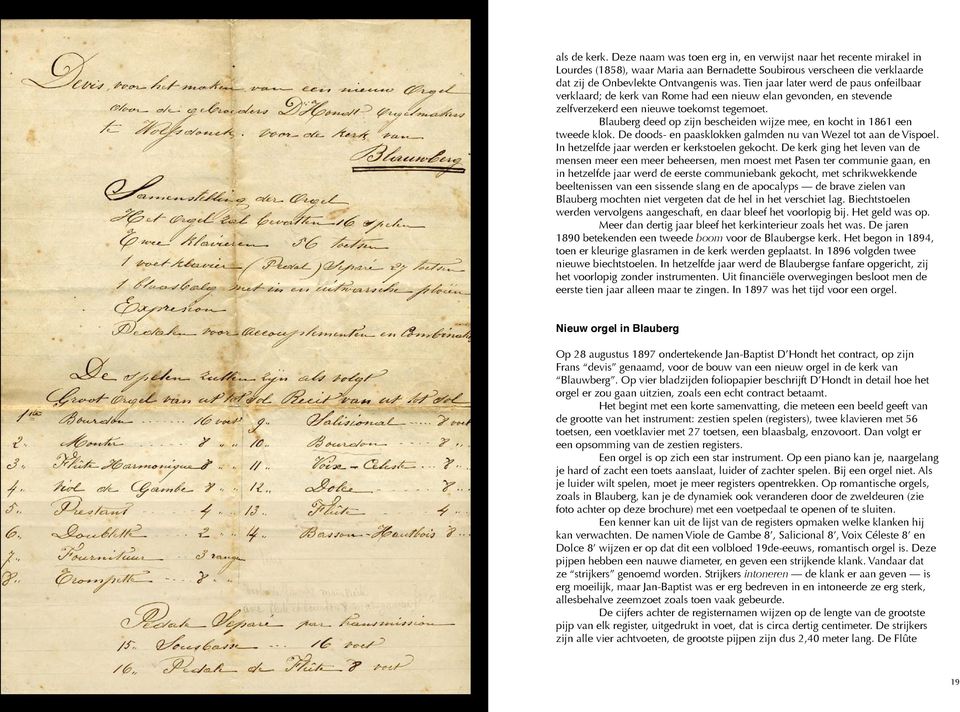 Devis, voor het maken van een nieuw Orgel
door de gebroeders D'Hondt Orgelmakers
te Wolfsdonck. voor de kerk van
Blauwberg
Samenstelling der Orgel
Het Orgel zal bevatten 16 Spelen
Twee Klavieren 56 toetsen
1 voet Klavier (Pedal) Separé 27 toetsen
1 blaasbalg met in en uitwaarsche plooien
Expresion
Pedalen voor accouplementen en Combinatie
De spelen zullen zijn als volgt
Groot Orgel van ut tot sol Recit van ut tot sol
1ste Bourdon 16 voet 9,, Salisional 8 voet
2,, Montre 8 ,, 10,, Bourdon 8 ,,
3,, Flûte Harmonique 8 ,, 11,, Voix-Celeste 8 ,,
4,, Viol de Gambe 8 ,, 12,, Dolce 8 ,,
5,, Prestant 4 ,, 13,, Flûte 4 ,,
6,, Doublette 2 ,, 14,, Basson-Hautbois 8 ,,
7,, Fourniture 3 rangs
8,, Trompette 8 ,,
Pedale Separé par transmission
15,, Sousbasse 16 voet
16,, Pedale de Flûte 8 voet
als de kerk. Deze naam was toen erg in, en verwijst naar het recente mirakel in
Lourdes (1858), waar Maria aan Bernadette Soubirous verscheen die verklaarde
dat zij de Onbevlekte Ontvangenis was. Tien jaar later werd de paus onfeilbaar
verklaard; de kerk van Rome had een nieuw elan gevonden, en stevende
zelfverzekerd een nieuwe toekomst tegemoet.
Blauberg deed op zijn bescheiden wijze mee, en kocht in 1861 een
tweede klok. De doods- en paasklokken galmden nu van Wezel tot aan de Vispoel.
In hetzelfde jaar werden er kerkstoelen gekocht. De kerk ging het leven van de
mensen meer een meer beheersen, men moest met Pasen ter communie gaan, en
in hetzelfde jaar werd de eerste communiebank gekocht, met schrikwekkende
beeltenissen van een sissende slang en de apocalyps — de brave zielen van
Blauberg mochten niet vergeten dat de hel in het verschiet lag. Biechtstoelen
werden vervolgens aangeschaft, en daar bleef het voorlopig bij. Het geld was op.
Meer dan dertig jaar bleef het kerkinterieur zoals het was. De jaren
1890 betekenden een tweede boom voor de Blaubergse kerk. Het begon in 1894,
toen er kleurige glasramen in de kerk werden geplaatst. In 1896 volgden twee
nieuwe biechtstoelen. In hetzelfde jaar werd de Blaubergse fanfare opgericht, zij
het voorlopig zonder instrumenten. Uit financiële overwegingen besloot men de
eerste tien jaar alleen maar te zingen. In 1897 was het tijd voor een orgel.
Nieuw orgel in Blauberg
Op 28 augustus 1897 ondertekende Jan-Baptist D'Hondt het contract, op zijn
Frans “devis” genaamd, voor de bouw van een nieuw orgel in de kerk van
“Blauwberg”. Op vier bladzijden foliopapier beschrijft D'Hondt in detail hoe het
orgel er zou gaan uitzien, zoals een echt contract betaamt.
Het begint met een korte samenvatting, die meteen een beeld geeft van
de grootte van het instrument: zestien spelen (registers), twee klavieren met 56
toetsen, een voetklavier met 27 toetsen, een blaasbalg, enzovoort. Dan volgt er
een opsomming van de zestien registers.
Een orgel is op zich een star instrument. Op een piano kan je, naargelang
je hard of zacht een toets aanslaat, luider of zachter spelen. Bij een orgel niet. Als
je luider wilt spelen, moet je meer registers opentrekken. Op romantische orgels,
zoals in Blauberg, kan je de dynamiek ook veranderen door de zweldeuren (zie
foto achter op deze brochure) met een voetpedaal te openen of te sluiten.
Een kenner kan uit de lijst van de registers opmaken welke klanken hij
kan verwachten. De namen Viole de Gambe 8’, Salicional 8’, Voix Céleste 8’ en
Dolce 8’ wijzen er op dat dit een volbloed 19de-eeuws, romantisch orgel is. Deze
pijpen hebben een nauwe diameter, en geven een strijkende klank. Vandaar dat
ze “strijkers” genoemd worden. Strijkers intoneren — de klank er aan geven — is
erg moeilijk, maar Jan-Baptist was er erg bedreven in, en zijn strijkers waren erg sterk,
allesbehalve zeemzoet zoals toen vaak gebeurde.
De cijfers achter de registernamen wijzen op de lengte van de grootste
pijp van elk register, uitgedrukt in voet, dat is circa dertig centimeter. De strijkers
zijn alle vier achtvoeten, de grootste pijpen zijn dus 2,40 meter lang. De Flûte
19